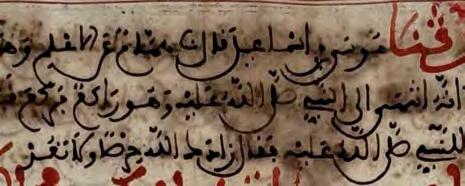 حدثنا موسى بن اسماعيل قال نا همام عن الاعلم وهو
انه انتهى الى النبي صلى الله عليه وهو راكع فركع
للنبي صلى الله عليه فقال زادك الله حرصا ولا تعد